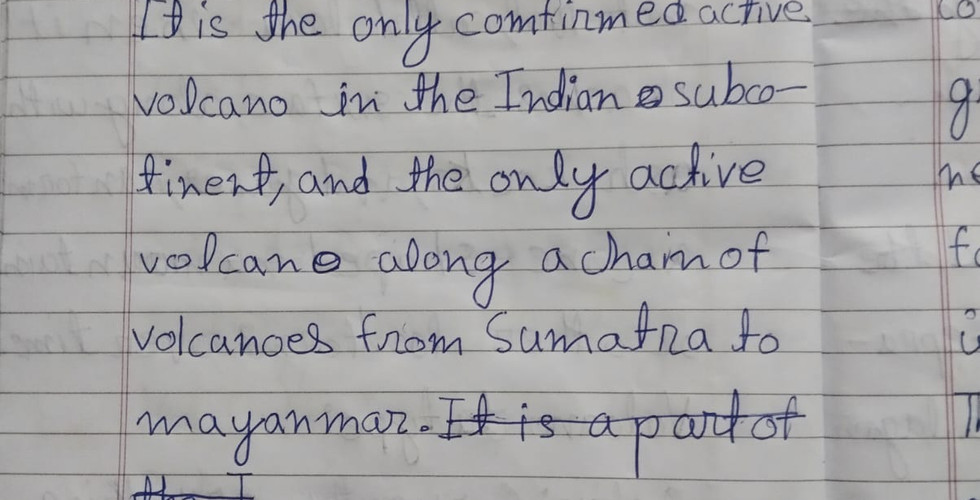 It is the only comfirmed active co
volcano in the Indian subco- g
tinent, and the only active
volcano along a chain of f
volcanoes from Sumatra to
mayanmar. It is a part of
the I